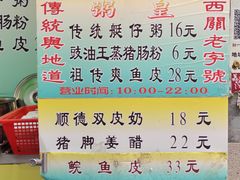 粥皇
傳統與地道
西關老字號
传统艇仔粥16元
豉油王蒸猪肠粉6元
祖传爽鱼皮28元
营业时间:10:00-22:00
顺德双皮奶18元
猪脚姜醋22元
鲩鱼皮33元